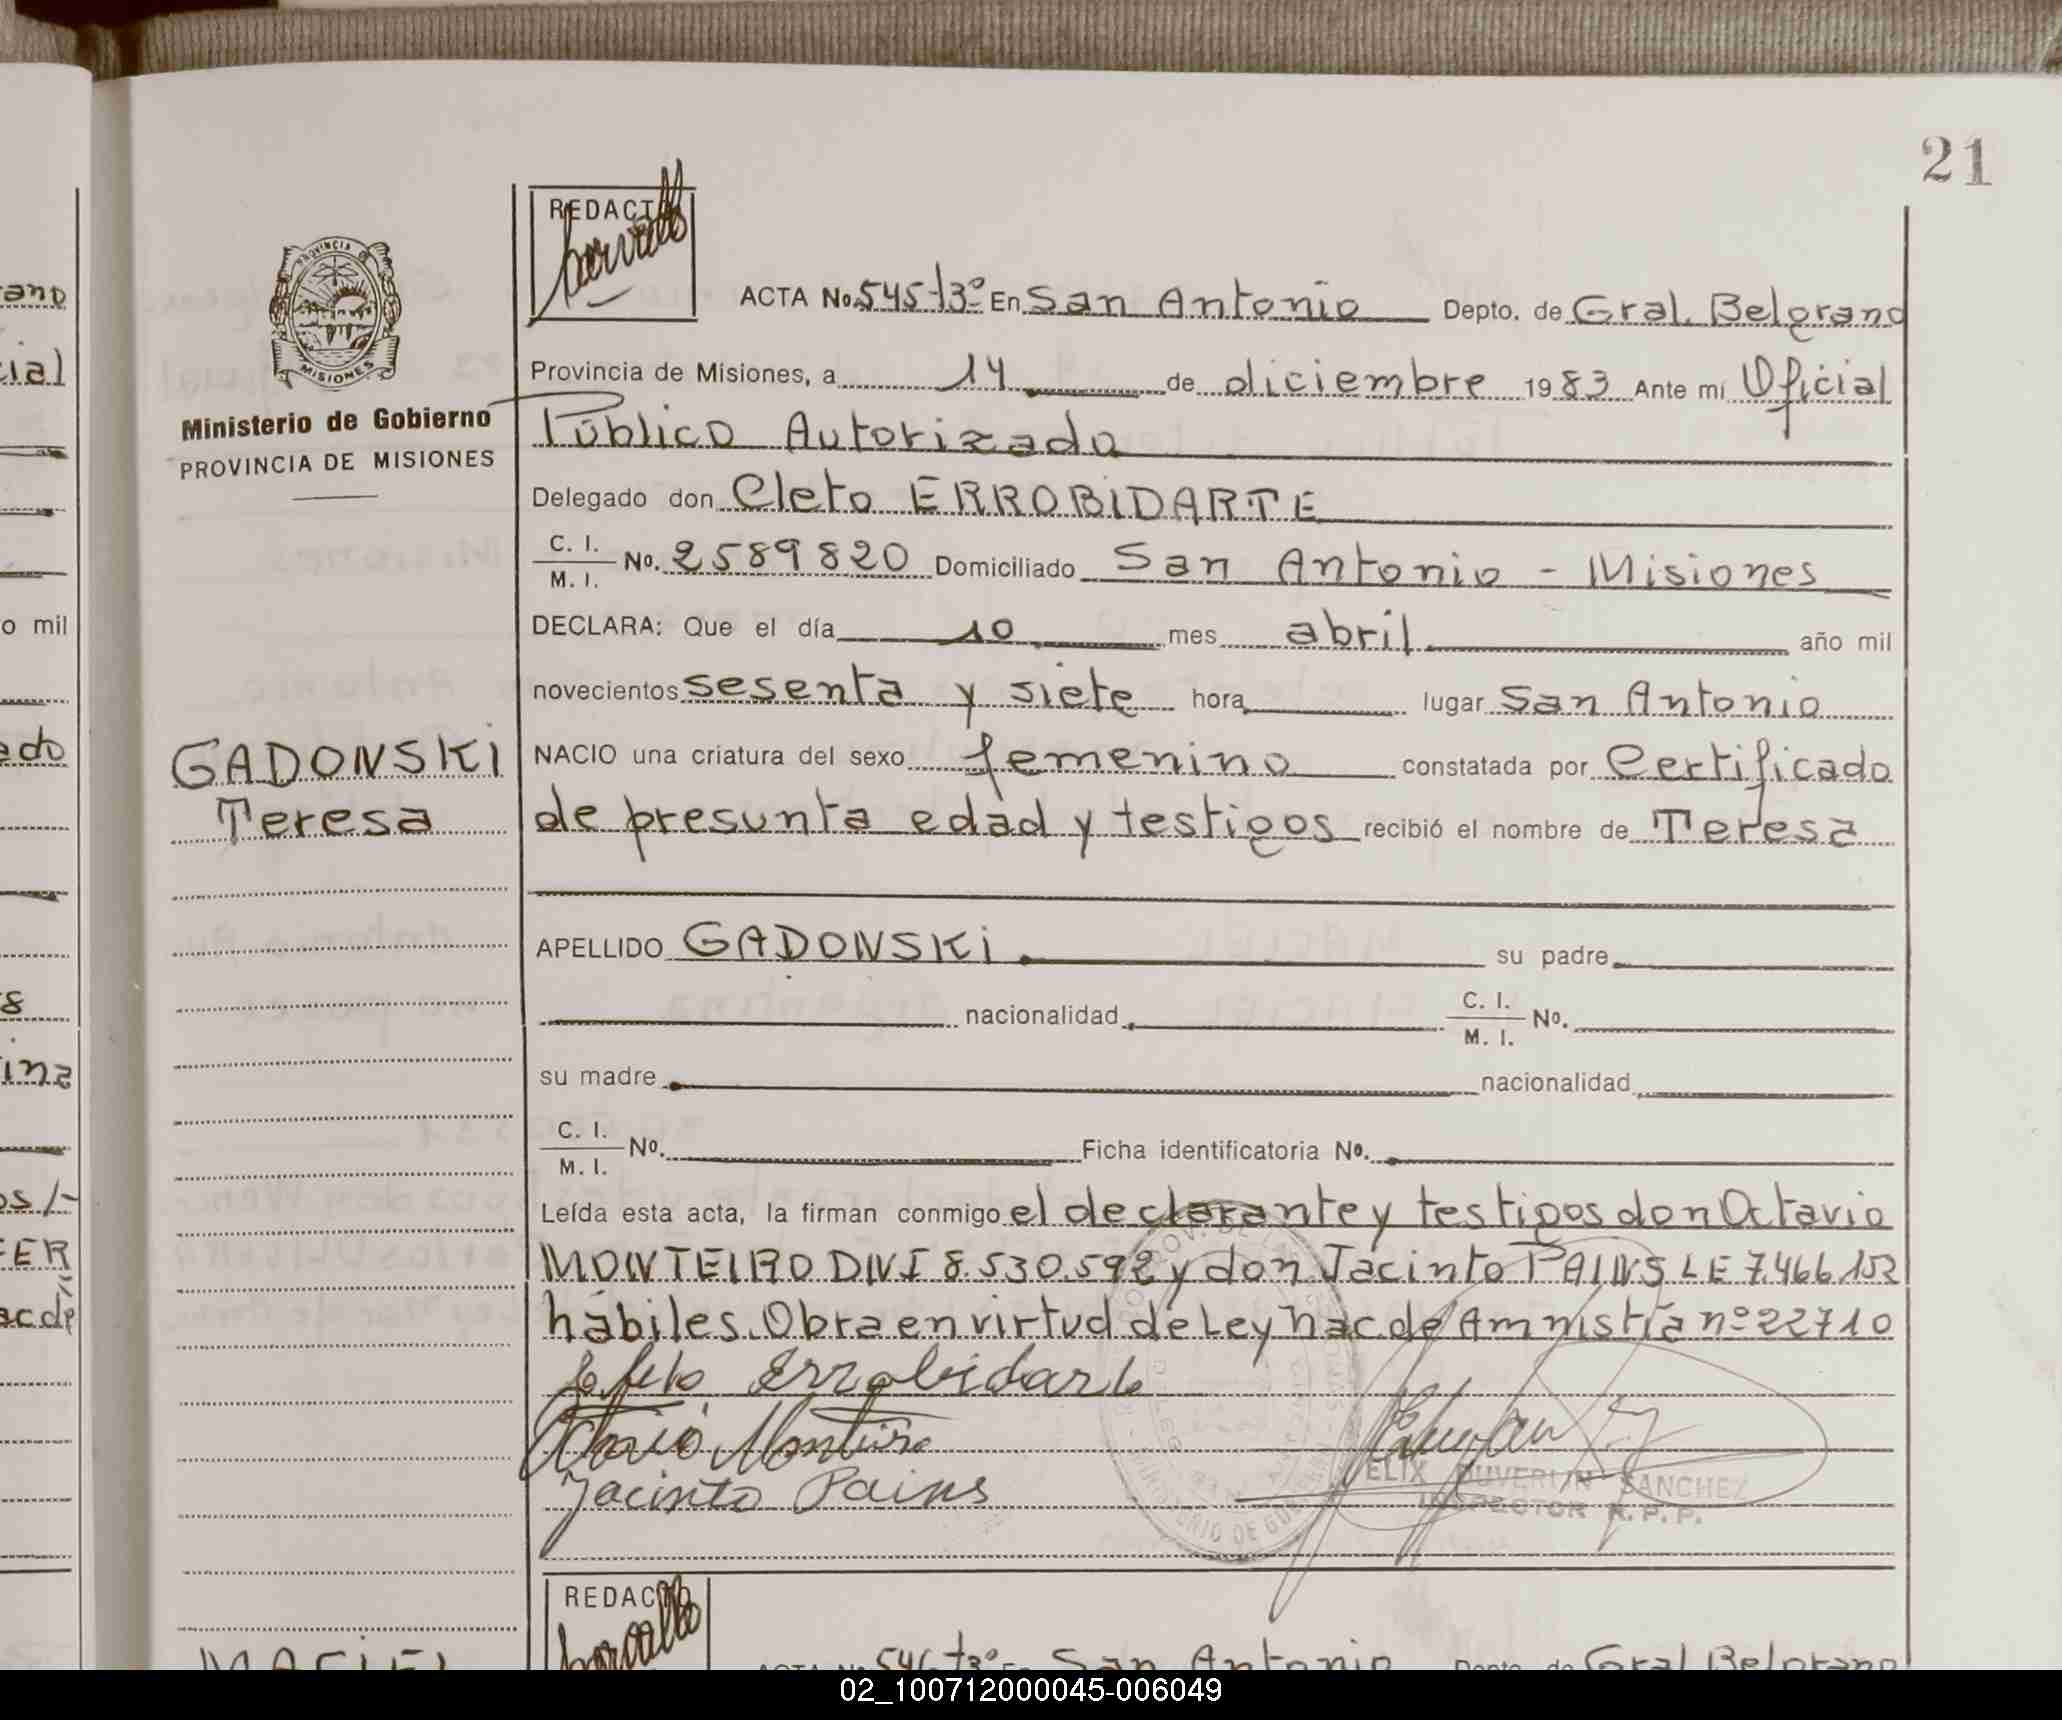 21
REDACTO
PROVINCIA DE
MISIONES
ACTA No. 545-t3º En San Antonio Depto. de Gral. Belgrano
Provincia de Misiones, a 14 de diciembre 1983 Ante mí Oficial
Ministerio de Gobierno
PROVINCIA DE MISIONES
Público Autorizado
Delegado don Cleto ERROBIDARTE
C. I. / M. I. No. 2589820 Domiciliado San Antonio - Misiones
DECLARA: Que el día 10 mes abril año mil
novecientos sesenta y siete hora lugar San Antonio
GADONSKI
Teresa
NACIO una criatura del sexo femenino constatada por Certificado
de presunta edad y testigos recibió el nombre de Teresa
APELLIDO GADONSKI su padre
nacionalidad C. I. / M. I. No.
su madre nacionalidad
C. I. / M. I. No. Ficha identificatoria No.
Leída esta acta, la firman conmigo el declarante y testigos don Octavio
MONTEIRO DNI 8.530.592 y don Jacinto PAINS LE 7.466.152
hábiles. Obra en virtud de Ley Nac. de Amnistía nº 22710
Cleto Errobidarte
Octavio Monteiro
Jacinto Pains
FELIX DUVERLIN SANCHEZ
INSPECTOR R. P. P.
MINISTERIO DE
REDACTO
MACIEL
ACTA No. 546-t3º En San Antonio Depto. de Gral Belgrano
ano
cial
o mil
ado
8
ina
os/-
ER
acde
02_100712000045-006049